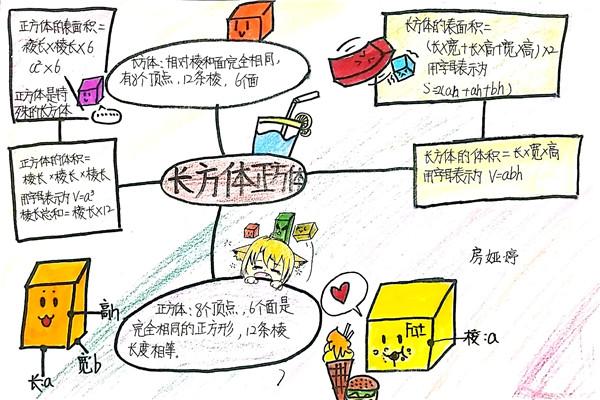 正方体的表面积=
棱长×棱长×6
a²×6
正方体是特
殊的长方体
长方体:相对棱和面完全相同,
有8个顶点,12条棱,6个面
长方体的表面积=
(长×宽+长×高+宽×高)×2
用字母表示为
S=2(ab+ah+bh)
正方体的体积=
棱长×棱长×棱长
用字母表示为 V=a³
棱长总和=棱长×12
长方体正方体
长方体的体积=长×宽×高
用字母表示为 V=abh
房娅婷
正方体:8个顶点,6个面是
完全相同的正方形,12条棱
长度相等。
高h
宽b
长:a
棱:a